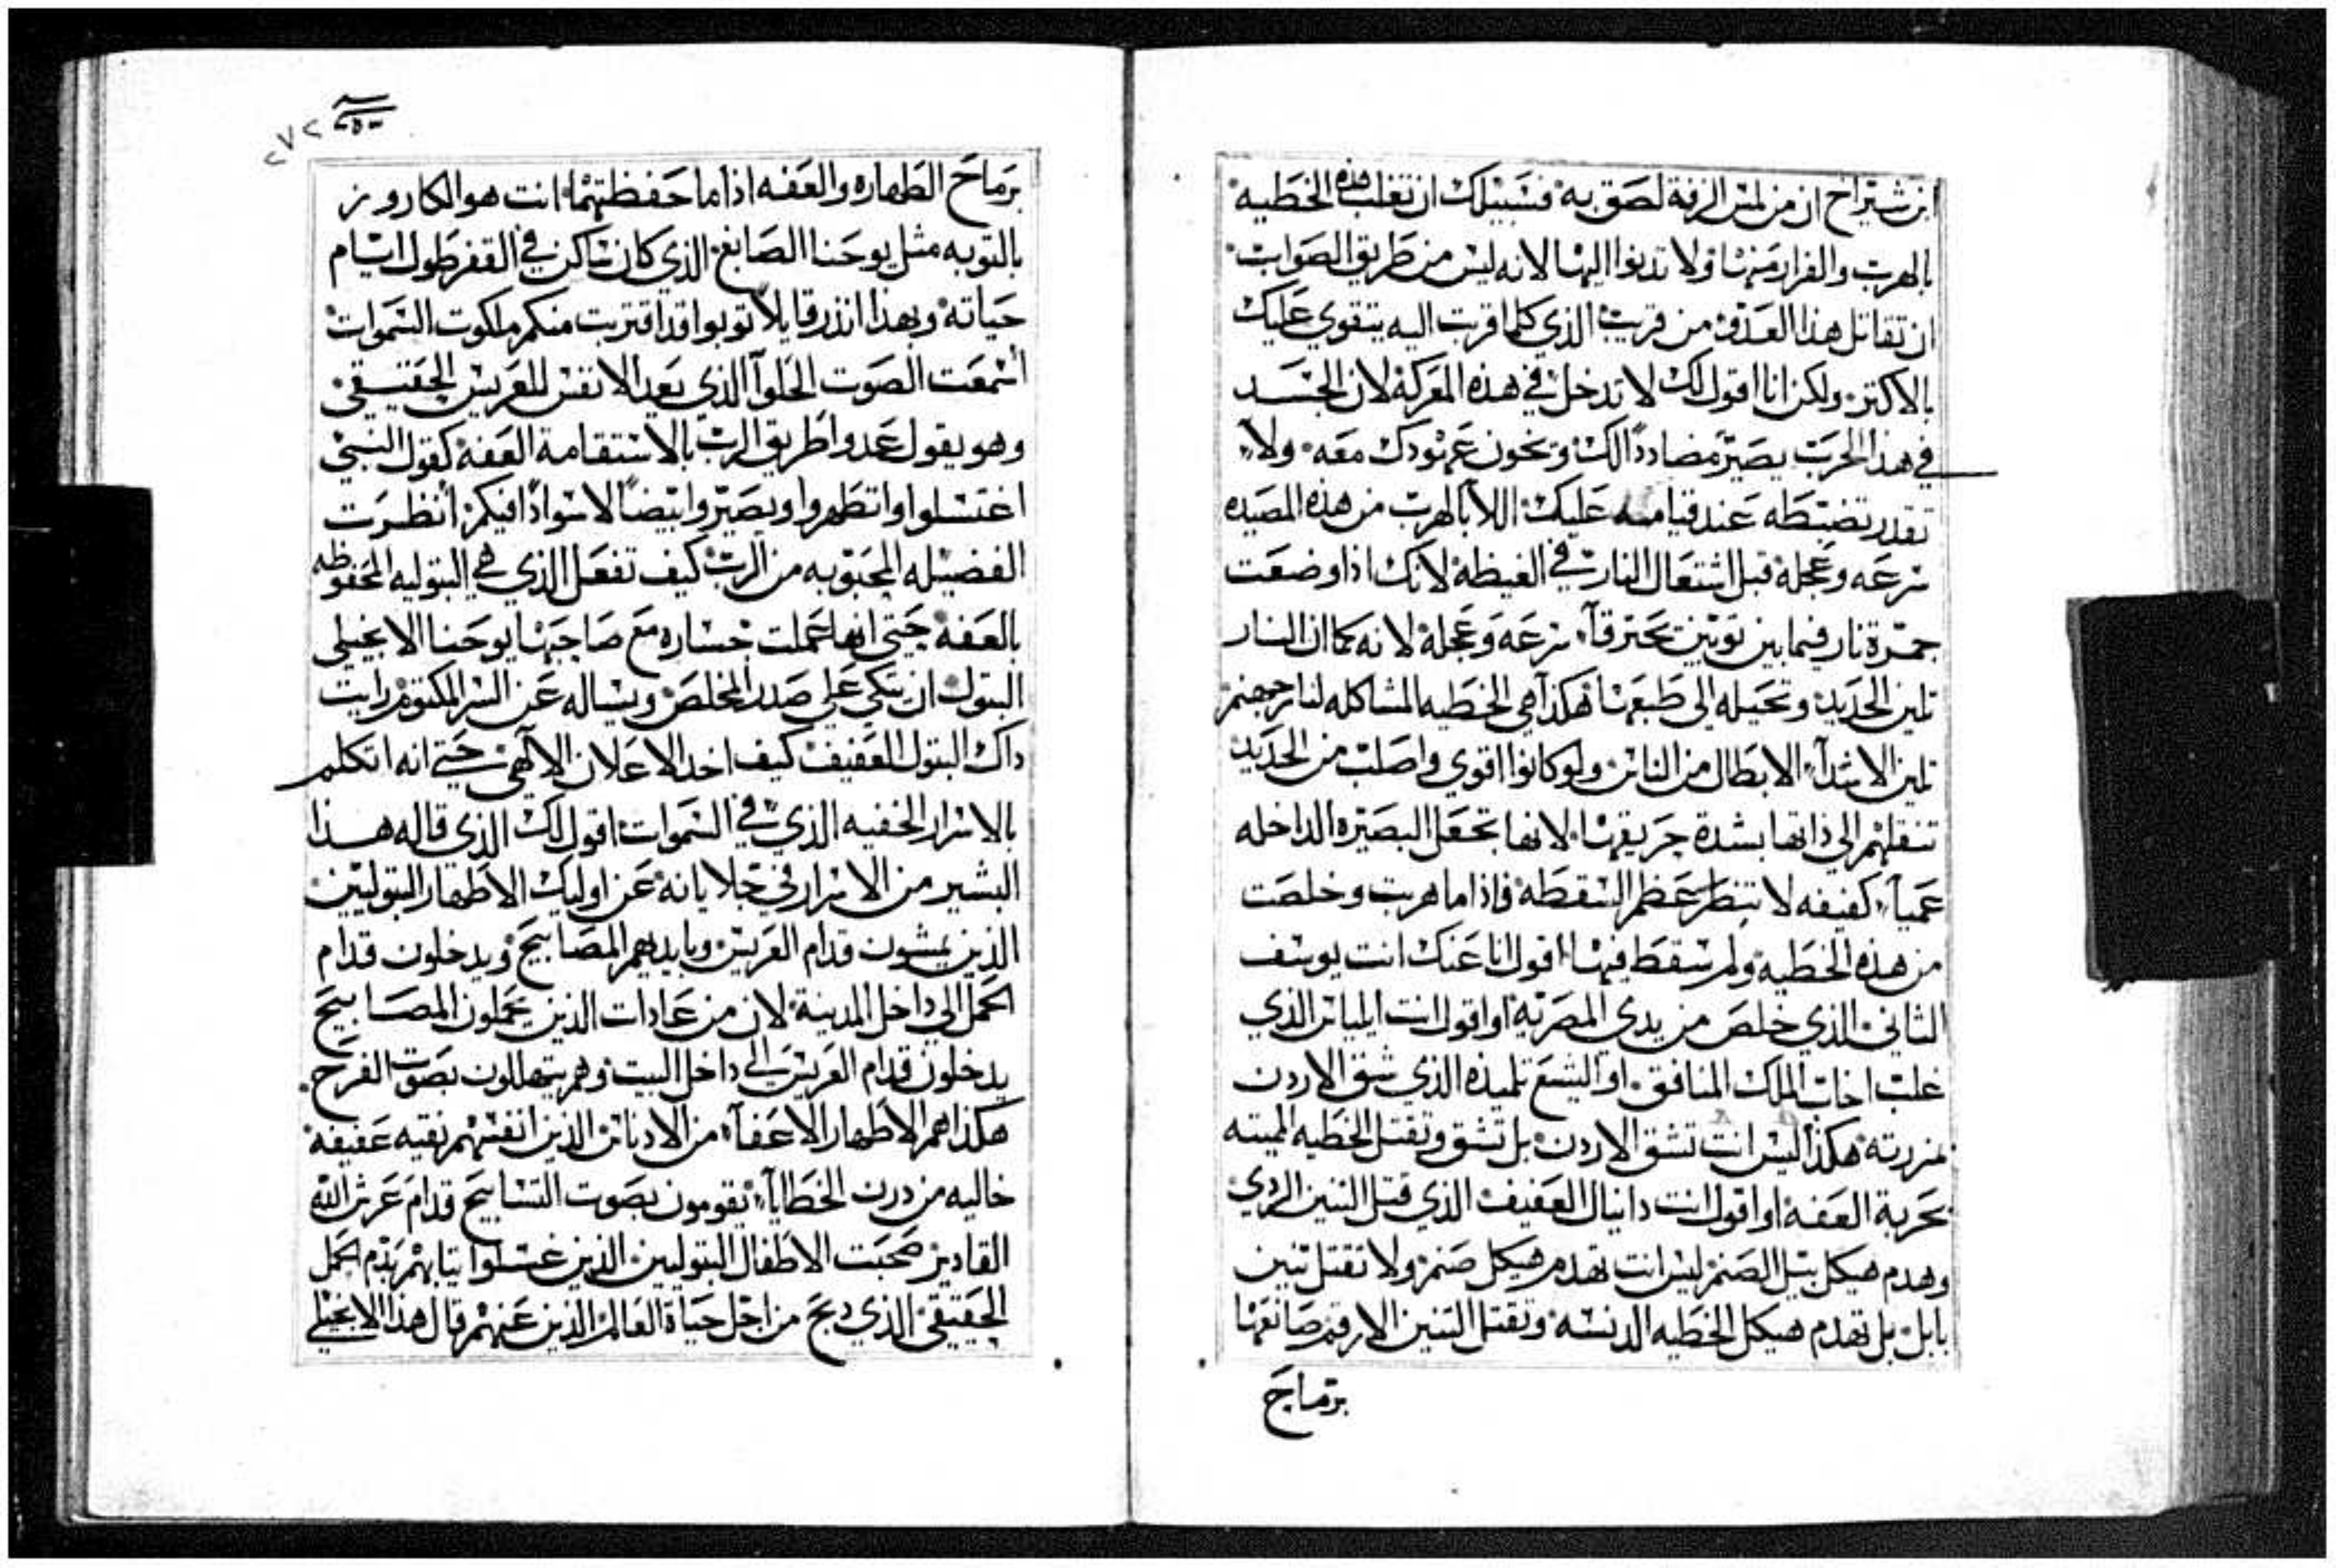 ابن شيراخ ان من لمس الزفة لصق به فسبيلك ان تغلب هذه الخطيه
بالهرب والفرار منها ولا تدنوا اليها لانه ليس من طريق الصواب
ان تقاتل هذا العدو من قريب الذي كلما اقربت اليه يتقوي عليك
بالاكتر ولكن انا اقول لك لا تدخل في هذه المعركة لان الجسد
في هذا الحرب يصير مضاددا لك وتخون عمودك معه ولا
تقدر تضبطه عند قيامه عليك اللا بالهرب من هذه المصيده
سرعه وعجلة قبل اشتعال النار في الغيظة لانك اذا وضعت
جمرة نار فيما بين توبين تحترقا سرعه وعجلة لانه كما ان النار
تلين الحديد وتحيله الى طبعها هكذا هي الخطيه المشاكله لنار جهنم
تلين الاشدا الابطال من الناس ولو كانوا اقوي واصلب من الحديد
تنقلهم الي ذاتها بشدة حريقها لانها تجعل البصيره الداخله
عميا كفيفه لا تنظر عظم السقطه فاذا ما هربت وخلصت
من هذه الخطيه ولم تسقط فيها اقول انا عنك انت يوسف
الثاني الذي خلص من يدي المصريه او اقول انت ايلياس الذي
غلب اخاب الملك المنافق او اليشع تلميذه الذي شق الاردن
بمزرته هكذا ليس انت تشق الاردن بل تشق وتقتل الخطيه المميته
بحربة العفه او اقول انت دانيال العفيف الذي قتل التنين الردي
وهدم هيكل بيل الصنم ليس انت تهدم هيكل صنم ولا تقتل تنين
بابل بل تهدم هيكل الخطيه الدنسه وتقتل التنين الارقم صانعها
برماح
٢٧٢
برماح الطهاره والعفه اذا ما حفظتهما انت هو الكاروز
بالتوبه مثل يوحنا الصابغ الذي كان ساكن في القفر طول ايام
حياته وبهذا انذر قايلا توبوا قد اقتربت منكم ملكوت السموات
اسمعت الصوت الحلوا الذي يعد الانفس للعريس الحقيقي
وهو يقول عدوا طريق الرب بالاستقامة العفه كقول النبي
اغتسلوا واتطهروا ويصيروا بيضا لا سوادا فيكم انظرت
الفضيله المحبوبه من الرب كيف تفعل الذي هي البتوليه المحفوظه
بالعفه حتى انها عملت خساره مع صاحبها يوحنا الانجيلي
البتول ان يتكي علي صدر المخلص ويساله عن السر المكتوم رايت
داك البتول العفيف كيف اخد الاعلان الالهي حتي انه اتكلم
بالاسرار الخفيه الذي في السموات اقول لك الذي قاله هذا
البشير من الاسرار في جلايانه عن اوليك الاطهار البتوليين
الذين يمشون قدام العريس وبايديهم المصابيح ويدخلون قدام
الحمل الي داخل المدينة لان من عادات الذين يحملون المصابيح
يدخلون قدام العريس الي داخل البيت وهم يتهللون بصوت الفرح
هكذا هم الاطهار الاعفا من الادناس الذين انفسهم نقيه عفيفه
خاليه من درن الخطايا يقومون بصوت التسابيح قدام عرش الله
القادير صحبت الاطفال البتوليين الذين غسلوا تيابهم بدم الحمل
الحقيقي الذي دبح من اجل حياة العالم الذين عنهم قال هذا الانجيلي